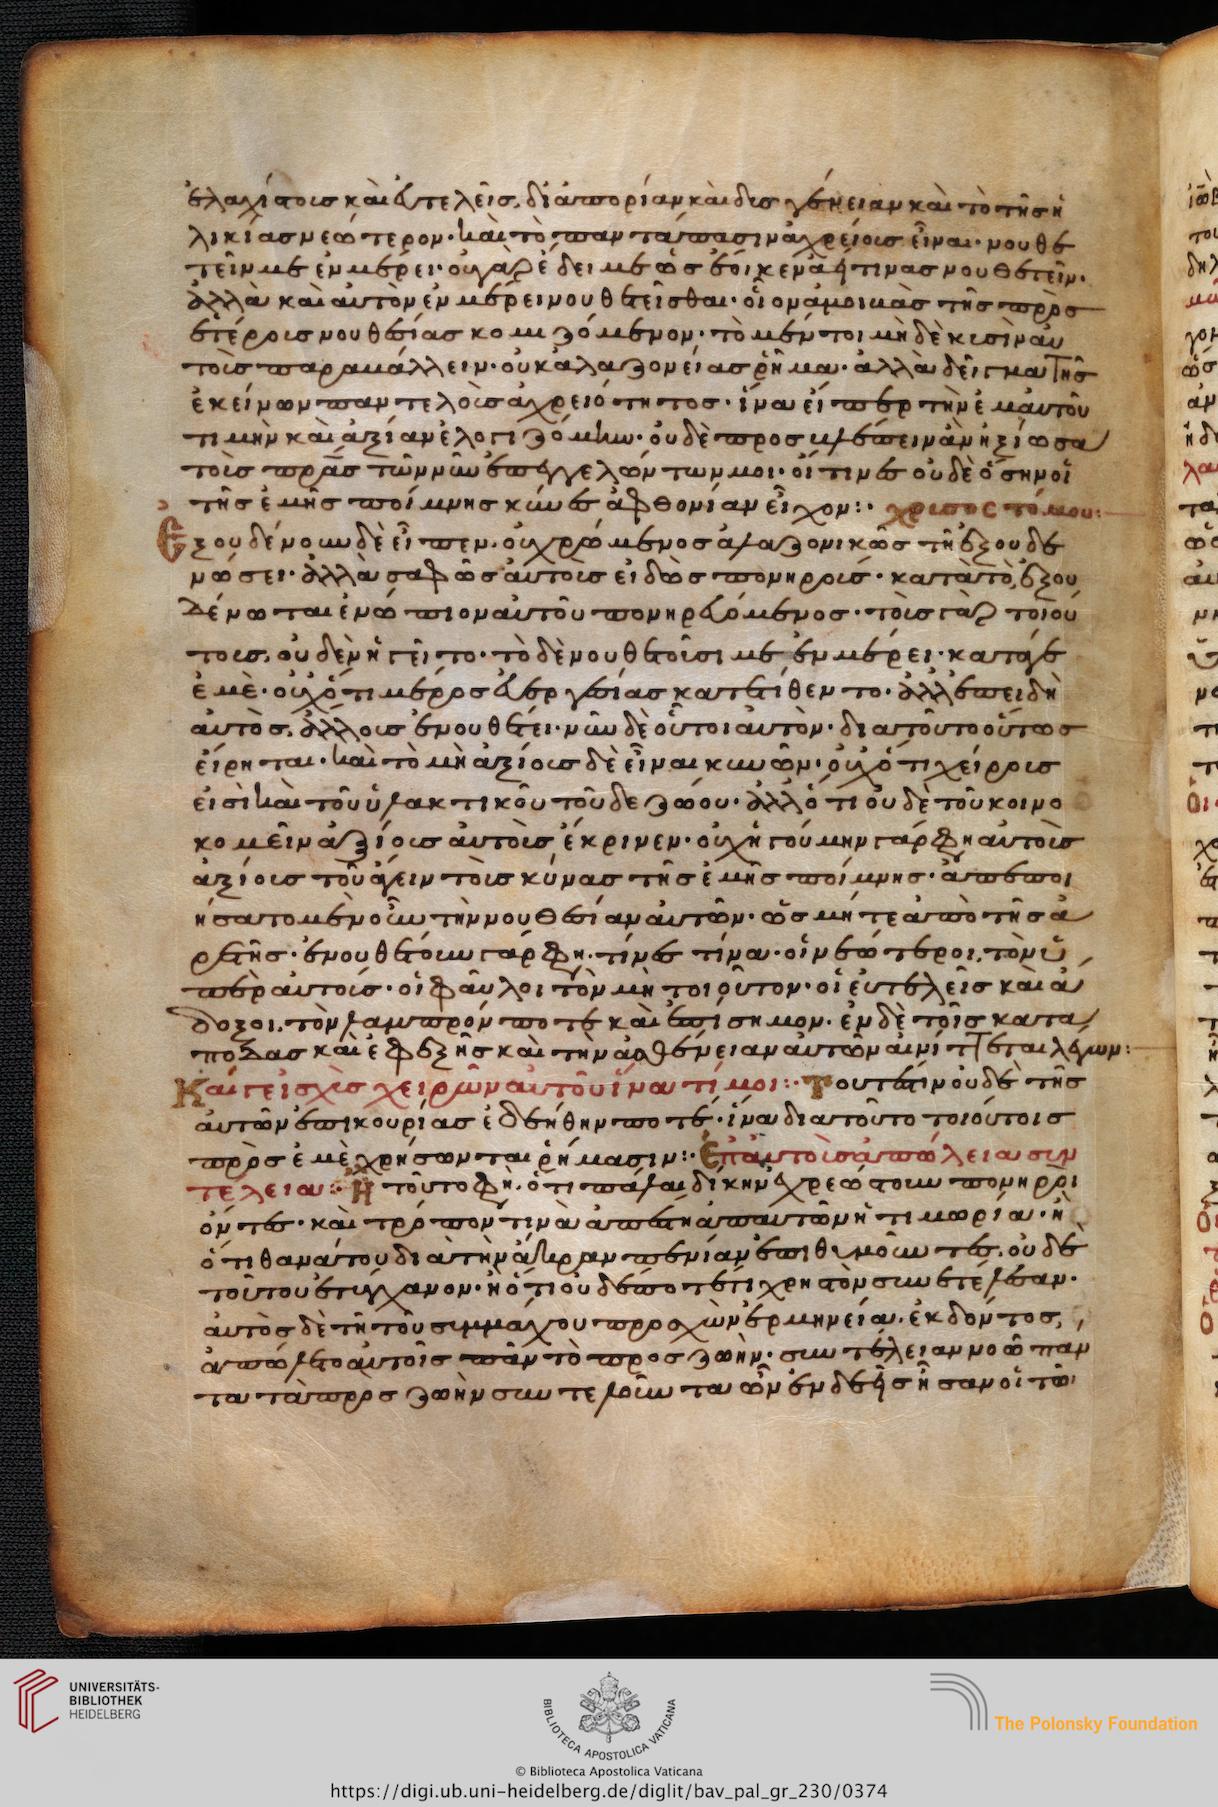 ἐλαχίστοις καὶ εὐτελεῖς. δι ἀπορίαν καὶ δυσγένειαν καὶ τὸ τῆς ἡ
λικίας νεώτερον· καὶ τὸ παντάπασιν ἀχρείοις εἶναι· νουθε
τεῖν με ἐν μέρει· οὐ γὰρ ἔδει με ὡς ἔοικεν ἀεί τινας νουθετεῖν·
ἀλλὰ καὶ αὐτὸν ἐν μέρει νουθετεῖσθαι· οἱονἀμοιβὰς τῆς πρὸς
ἑτέροις νουθεσίας κομιζόμενον· τὸ μέντοι μηδὲ κυσὶν αὐ
τοῖς παραβάλλειν· οὐκ ἀλαζονείας ῥῆμα· ἀλλὰ δεῖγμα τῆς
ἐκείνων παντελοῖς ἀχρειότητος· ἵνα εἴπερ τὴν ἐμαυτοῦ
τιμὴν καὶ ἀξίαν ἐλογιζόμην· οὐδὲ προσβλέπειν ἂν ἠξίωσα
τοῖς πρᾶς τῶν νῦν ἐπεγγελώντων μοι· οἵτινες οὐδὲ ὅσην οἱ
τῆς ἐμῆς ποίμνης κύνες ἀφθονίαν εἶχον:· χρυσοστόμου:
Ἐξουδένουν δὲ εἶπεν. οὐ χρώμενος ἀλαζονικῶς τῇ ἐξουδε
νώσει· ἀλλὰ σαφῶς αὐτοῖς εἰδὼς πονηροῖς· κατὰ τὸ, ἐξου
δένωται ἐνώπιον αὐτοῦ πονηρευόμενος· τοῖς γὰρ τοιού
τοις, οὐδὲν ἡγεῖτο· τὸ δὲ νουθετοῦσί με ἐν μέρει· κατάγε
ἐμὲ· οὐχ ὅτι μέρος εὐεργεσίας κατετίθεντο· ἀλλ ἐπειδὴ
αὐτὸς, ἄλλοις ἐνουθέτει· νῦν δὲ οὗτοι αὐτὸν· διατοῦτο οὕτως
εἴρηται· καὶ τὸ μὴ ἀξίοις δὲ εἶναι κυνῶν· οὐχ ὅτι χείροις
εἰσὶ καὶ τοῦ ὑλακτικοῦ τοῦδε ζώου· ἀλλ ὅτι οὐδὲ τοῦ κυνο
κομεῖν ἀξίοις αὐτοῖς ἔκρινεν· οὐχ ἡγούμην γάρ φη αὐτοῖς
ἀξίοις τοῦ ἄγειν τοῖς κύνας τῆς ἐμῆς ποίμνης· ἀπεποι
ήσατο μὲν οὖν τὴν νουθεσίαν αὐτῶν· ὡς μήτε ἀπὸ τῆς ἀ
ρετῆς· ἐνουθέτουν γάρ φη. τίνες τίνα· οἱ νεώτεροι, τὸν ὑ
πὲρ αὐτοίς· οἱ φαῦλοι τὸν μὴ τοιοῦτον· οἱ εὐτελεῖς καὶ ἄ
δοξοι, τὸν λαμπρόν ποτε καὶ ἐπίσημον. ἐν δὲ τοῖς κατα
πόδας καὶ ἐφεξῆς καὶ τὴν ἀσθένειαν αὐτῶν αἰνίττεται λέγων:
Καί γε ἰσχὺς χειρῶν αὐτοῦ ἵνα τί μοι:· Τουτέστιν οὐδὲ τῆς
αὐτῶν ἐπικουρίας ἐδεήθην ποτέ· ἵνα διατοῦτο τοιούτοις
πρὸς ἐμὲ χρήσωνται ῥήμασιν:· Ἐπ αὐτοῖς ἀπώλεια συν
τέλεια:· Ἢ τοῦτο φη, ὅτι πάλαι δίκην ἐχρεώστουν πονηροὶ
ὄντες· καὶ τρόπον τινὰ ἀπέστη ἀπ αὐτῶν ἡ τιμωρία· ἢ
ὅτι θανάτου διὰ τὴν ἄκραν πενίαν ἐπιθυμοῦντες, οὐδὲ
τοῦτου ἐτύγχανον· ἢ ὅτι οὐδέποτέ τι χρηστὸν συνετέλεσαν·
αὐτὸς δὲ τῇ τοῦ συμμάχου προσχὼν ἑρμηνεία, ἐκδόντος,
ἀπώλετο αὐτοῖς πᾶν τὸ πρὸς ζωήν· συντέλειαν νοῶ πάν
τα τὰ πρὸς ζωὴν συντελοῦντα ὧν ἐνδεεῖς ἦσαν οἱ τῶ
UNIVERSITÄTS-
BIBLIOTHEK
HEIDELBERG
BIBLIOTECA APOSTOLICA VATICANA
The Polonsky Foundation
© Biblioteca Apostolica Vaticana
https://digi.ub.uni-heidelberg.de/diglit/bav_pal_gr_230/0374